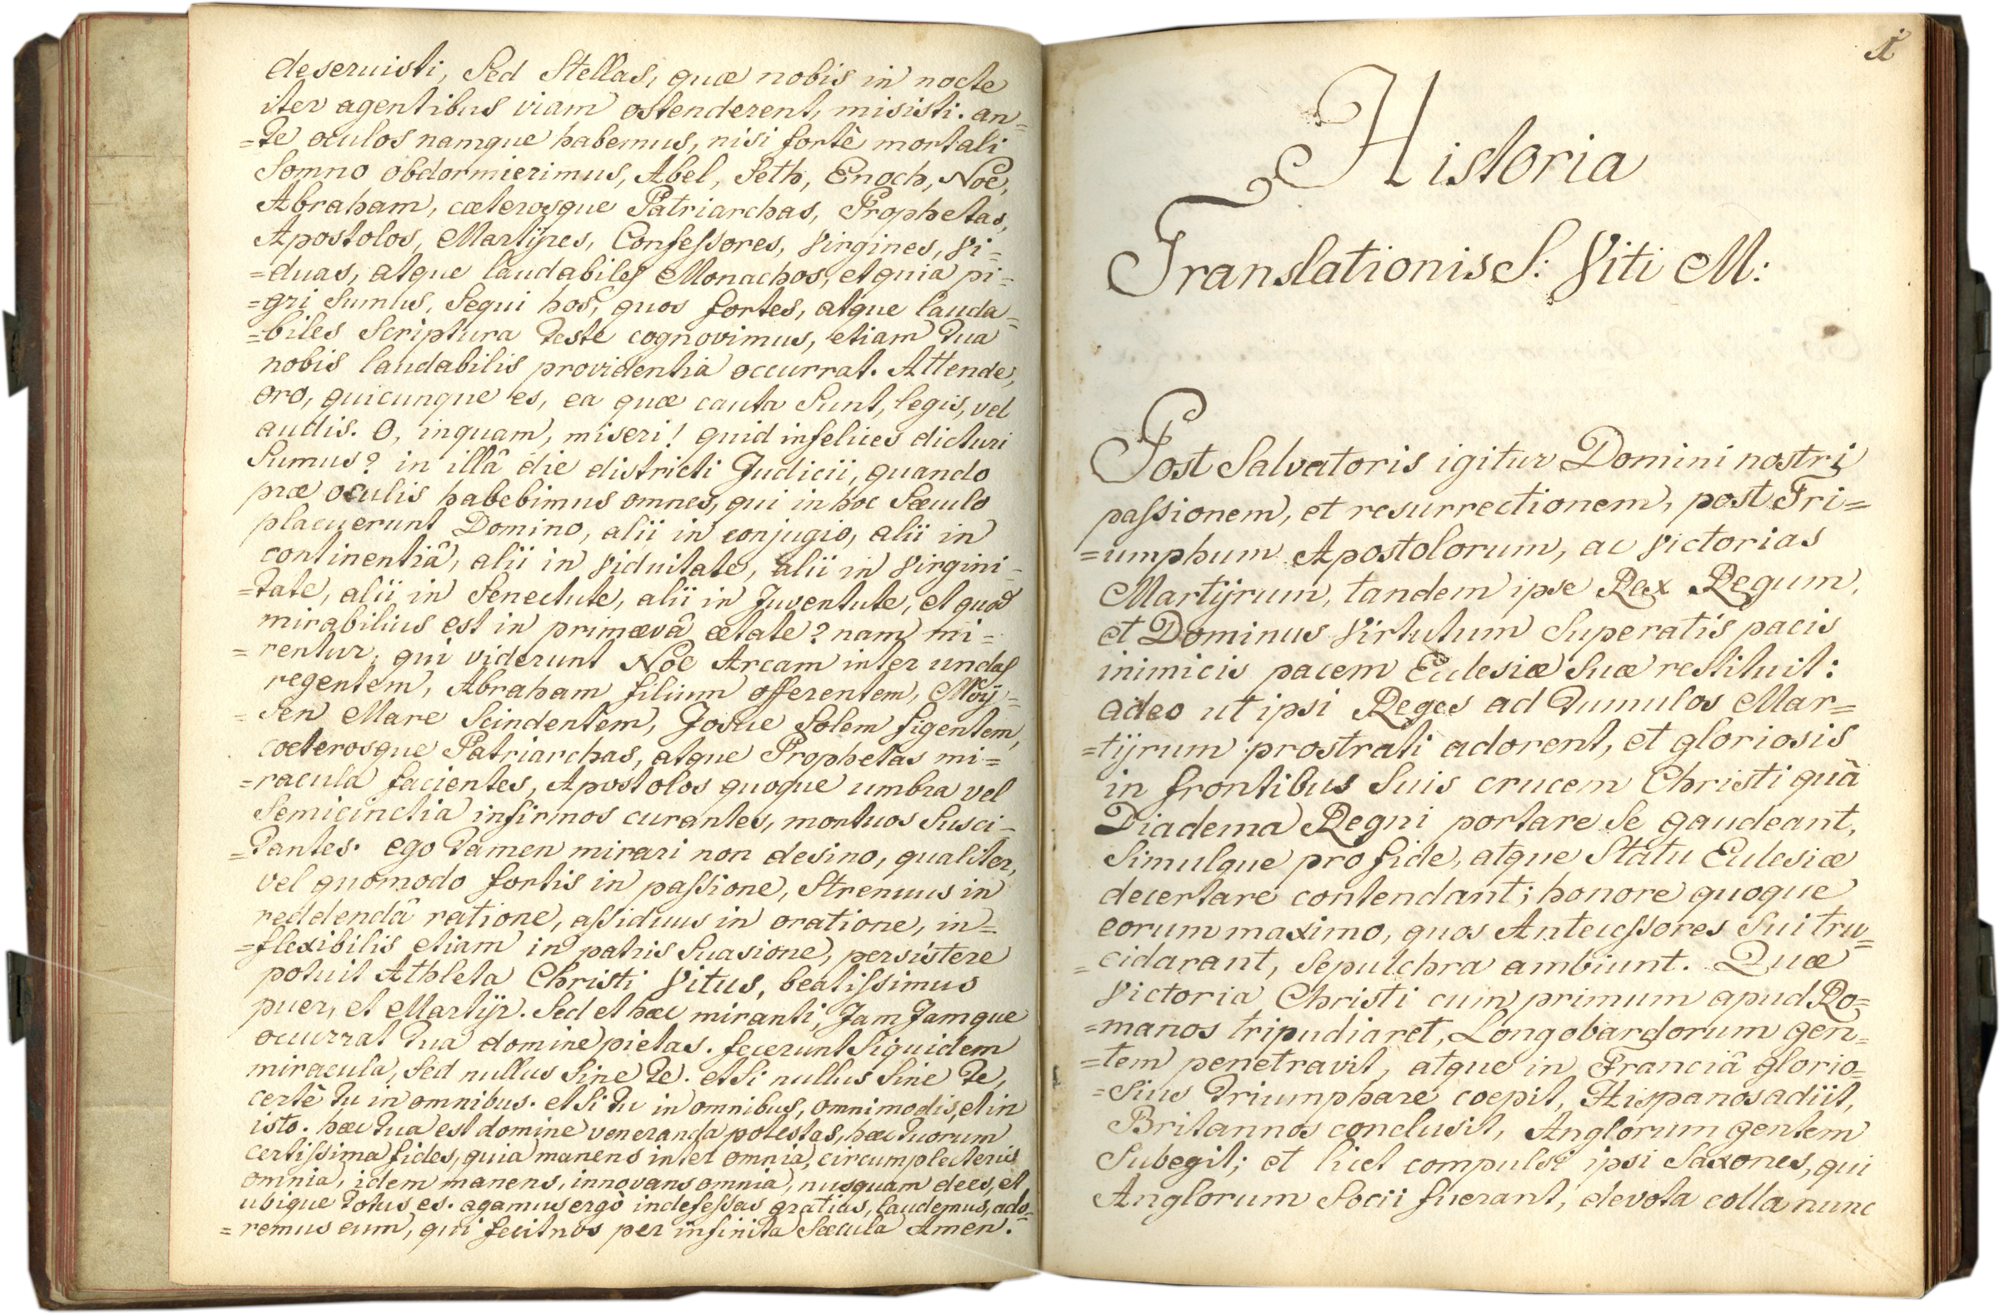 deseruisti, Sed Stellas, quæ nobis in nocte
iter agentibus viam ostenderent, misisti. an=
=te oculos namque habemus, nisi fortè mortali
Somno obdormierimus, Abel, Seth, Enoch, Noë,
Abraham, cæterosque Patriarchas, Prophetas,
Apostolos, Martÿres, Confessores, Virgines, Vi=
=duas, atque laudabiles Monachos, et quia pi=
=gri Sumus, Sequi hos, quos fortes, atque lauda=
=biles Scriptura teste cognovimus, etiam tua
nobis laudabilis providentia occurrat. Attende,
oro, quicunque es, ea quæ cauta Sunt, legis, vel
audis. O, inquam, miseri! quid infelices dicturi
Sumus? in illâ die districti Judicii, quando
præ oculis habebimus omnes, qui in hoc Sæculo
placuerunt Domino, alii in conjugio, alii in
continentiâ, alii in Viduitate, alii in Virgini=
=tate, alii in Senectute, alii in Juventute, et quod
mirabilius est in primævâ ætate? nam mi=
=rentur, qui viderunt Noë Arcam inter undas
regentem, Abraham filium offerentem, Moÿ=
=Sen Mare Scindentem, Josue Solem figentem,
cœterosque Patriarchas, atque Prophetas mi=
=racula facientes, Apostolos quoque umbra vel
Semicinctia infirmos curantes, mortuos Susci=
=tantes. ego tamen mirari non desino, qualiter,
vel quomodo fortis in passione, Strenuus in
reddendâ ratione, assiduus in oratione, in=
=flexibilis etiam in patris Suasione, persistere
potuit Athleta Christi Vitus, beatissimus
puer, et Martÿr. Sed et hæc miranti, Jam Jamque
ocurrat tua domine pietas. fecerunt Siquidem
miracula, Sed nullus Sine te. et Si nullus Sine te,
certè tu in omnibus. et Si tu in omnibus, omnimodis, et in
isto. hæc tua est domine veneranda potestas, hæc tuorum
certissima fides, quia manens inter omnia, circumplecteris
omnia, idem manens, innovans omnia, nusquam dees, et
ubique totus es. agamus ergò indefessas gratias, laudemus, ado=
=remus eum, qui fecit nos per infinita Sæcula Amen.
1
Historia
Translationis S: Viti M:
Post Salvatoris igitur Domini nostri
passionem, et resurrectionem, post Tri=
=umphum Apostolorum, ac Victorias
Martÿrum, tandem ipse Rex Regum,
et Dominus Virtutum Superatis pacis
inimicis pacem Eclesiæ Suæ restituit:
adeo ut ipsi Reges ad tumulos Mar=
=tÿrum prostrati adorent, et gloriosis
in frontibus Suis crucem Christi quà
Diadema Regni portare Se gaudeant,
Simulque pro fide, atque Statu Eclesiæ
decertare contendant; honore quoque
eorum maximo, quos Antecessores Sui tru=
=cidarant, Sepulchra ambiunt. Quæ
Victoria Christi cum primum apud Ro=
=manos tripudiaret, Longobardorum gen=
=tem penetravit, atque in Franciâ glorio=
=Sius triumphare coepit, Hispanos adiit,
Britannos conclusit, Anglorum gentem
Subegit; et licet compulsi ipsi Saxones, qui
Anglorum Socii fuerant, devota colla nunc